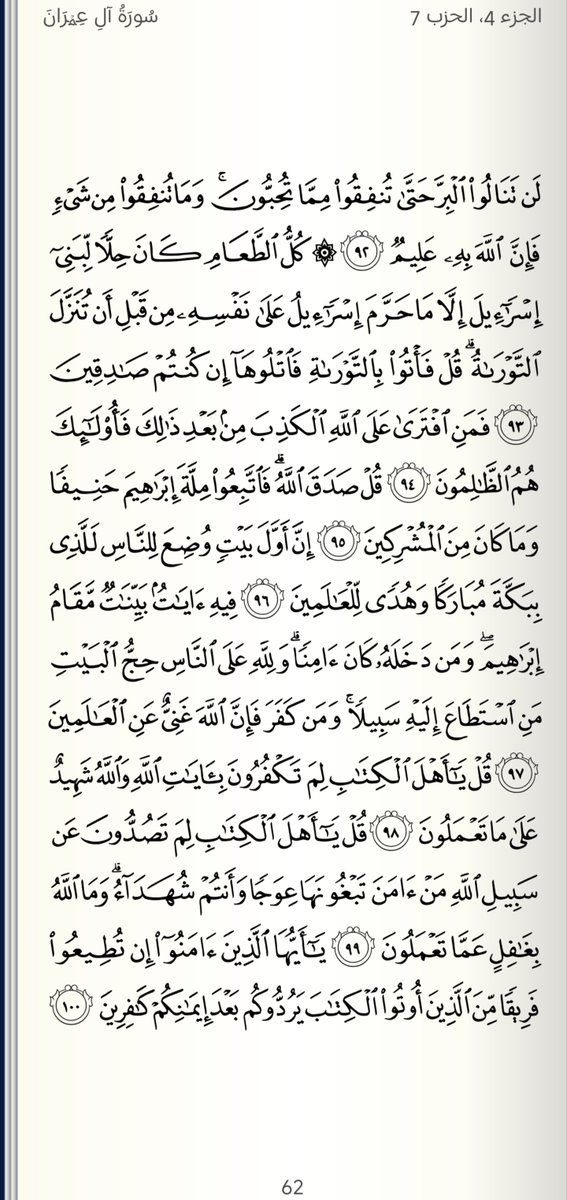 الجزء 4، الحزب 7
سُورَةُ آلِ عِمۡرَانَ
لَن تَنَالُواْ ٱلۡبِرَّ حَتَّىٰ تُنفِقُواْ مِمَّا تُحِبُّونَۚ وَمَا تُنفِقُواْ مِن شَيۡءٖ
فَإِنَّ ٱللَّهَ بِهِۦ عَلِيمٞ ٩٢ ۞ كُلُّ ٱلطَّعَامِ كَانَ حِلّٗا لِّبَنِيٓ
إِسۡرَٰٓءِيلَ إِلَّا مَا حَرَّمَ إِسۡرَٰٓءِيلُ عَلَىٰ نَفۡسِهِۦ مِن قَبۡلِ أَن تُنَزَّلَ
ٱلتَّوۡرَىٰةُۚ قُلۡ فَأۡتُواْ بِٱلتَّوۡرَىٰةِ فَٱتۡلُوهَآ إِن كُنتُمۡ صَٰدِقِينَ
٩٣ فَمَنِ ٱفۡتَرَىٰ عَلَى ٱللَّهِ ٱلۡكَذِبَ مِنۢ بَعۡدِ ذَٰلِكَ فَأُوْلَٰٓئِكَ
هُمُ ٱلظَّٰلِمُونَ ٩٤ قُلۡ صَدَقَ ٱللَّهُۗ فَٱتَّبِعُواْ مِلَّةَ إِبۡرَٰهِيمَ حَنِيفٗا
وَمَا كَانَ مِنَ ٱلۡمُشۡرِكِينَ ٩٥ إِنَّ أَوَّلَ بَيۡتٖ وُضِعَ لِلنَّاسِ لَلَّذِي
بِبَكَّةَ مُبَارَكٗا وَهُدٗى لِّلۡعَٰلَمِينَ ٩٦ فِيهِ ءَايَٰتُۢ بَيِّنَٰتٞ مَّقَامُ
إِبۡرَٰهِيمَۖ وَمَن دَخَلَهُۥ كَانَ ءَامِنٗاۗ وَلِلَّهِ عَلَى ٱلنَّاسِ حِجُّ ٱلۡبَيۡتِ
مَنِ ٱسۡتَطَاعَ إِلَيۡهِ سَبِيلٗاۚ وَمَن كَفَرَ فَإِنَّ ٱللَّهَ غَنِيٌّ عَنِ ٱلۡعَٰلَمِينَ
٩٧ قُلۡ يَٰٓأَهۡلَ ٱلۡكِتَٰبِ لِمَ تَكۡفُرُونَ بِـَٔايَٰتِ ٱللَّهِ وَٱللَّهُ شَهِيدٌ
عَلَىٰ مَا تَعۡمَلُونَ ٩٨ قُلۡ يَٰٓأَهۡلَ ٱلۡكِتَٰبِ لِمَ تَصُدُّونَ عَن
سَبِيلِ ٱللَّهِ مَنۡ ءَامَنَ تَبۡغُونَهَا عِوَجٗا وَأَنتُمۡ شُهَدَآءُۗ وَمَا ٱللَّهُ
بِغَٰفِلٍ عَمَّا تَعۡمَلُونَ ٩٩ يَٰٓأَيُّهَا ٱلَّذِينَ ءَامَنُوٓاْ إِن تُطِيعُواْ
فَرِيقٗا مِّنَ ٱلَّذِينَ أُوتُواْ ٱلۡكِتَٰبَ يَرُدُّوكُم بَعۡدَ إِيمَٰنِكُمۡ كَٰفِرِينَ ١٠٠
62